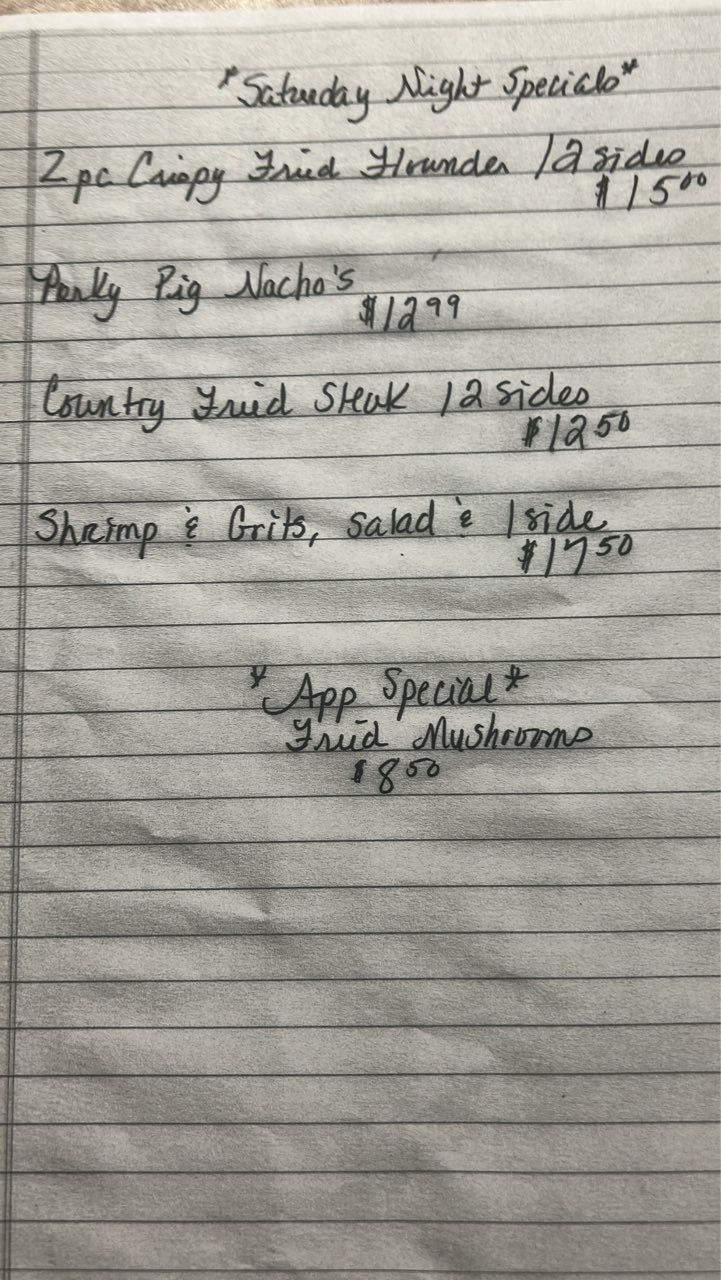 *Saturday Night Specials*
2pc Crispy Fried Flounder /2 sides
$15.00
Porky Pig Nacho's
$12.99
Country Fried Steak /2 sides
$12.50
Shrimp & Grits, Salad & 1 side
$17.50
*App Special*
Fried Mushrooms
$8.00